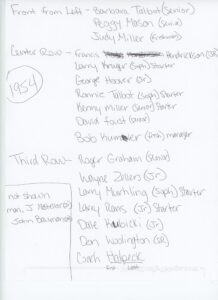 Front from Left - Barbara Talbot (Senior)
Peggy Mason (Senior)
Judy Miller (Freshman)
Center Row - Francis Hendrickson (SR)
Larry Kruger (Soph) Starter
1954
George Hoover (Jr)
Ronnie Talbot (Soph) Starter
Kenny Miller (Senior) Starter
David Foust (Junior)
Bob (Frosh) manager
Third Row - Roger Graham (Senior)
Wayne Zellers (Jr)
Larry (Soph) Starter
Larry Rans (Jr) Starter
Dale Kubicki (Jr)
Don Woolington (SR)
Coach Holpeck
First Last
not shown
man. J.
John Baumann